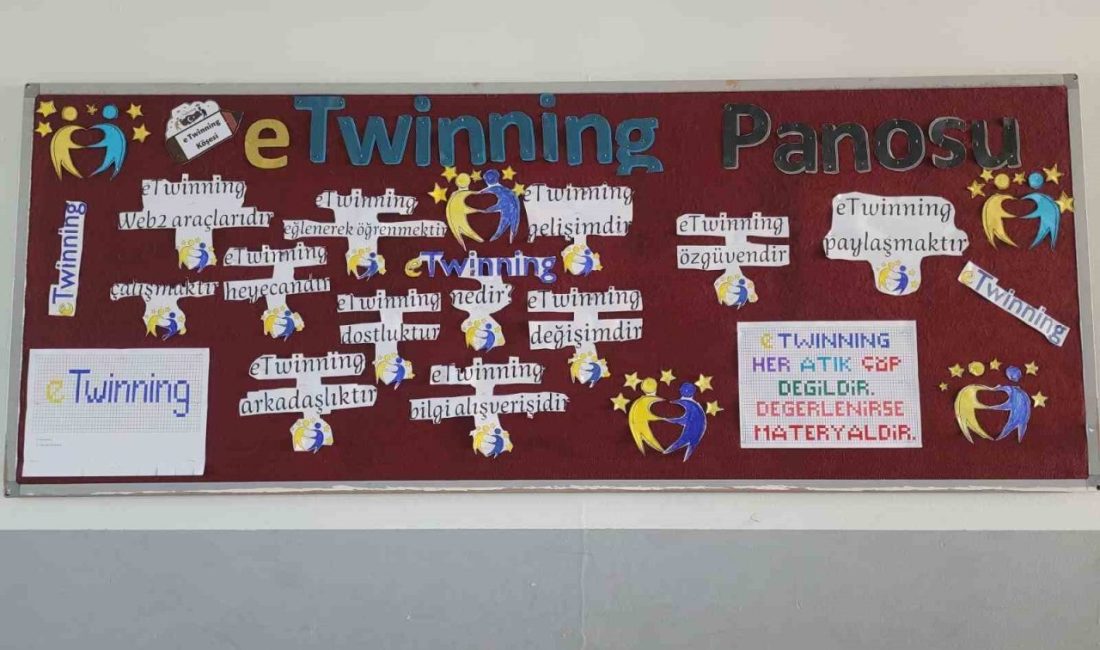 eTwinning Panosu
e Twinning
Köşesi
eTwinning
eTwinning
Web2 araçlarıdır
eTwinning
eğlenerek öğrenmektir
eTwinning
gelişimdir
eTwinning
özgüvendir
eTwinning
paylaşmaktır
çalışmaktır
eTwinning
heyecandır
eTwinning
nedir?
eTwinning
dostluktur
eTwinning
değişimdir
eTwinning
eTwinning
eTwinning
arkadaşlıktır
eTwinning
bilgi alışverişidir
e TWINNING
HER ATIK ÇÖP
DEGİLDİR.
DEGERLENİRSE
MATERYALDİR.